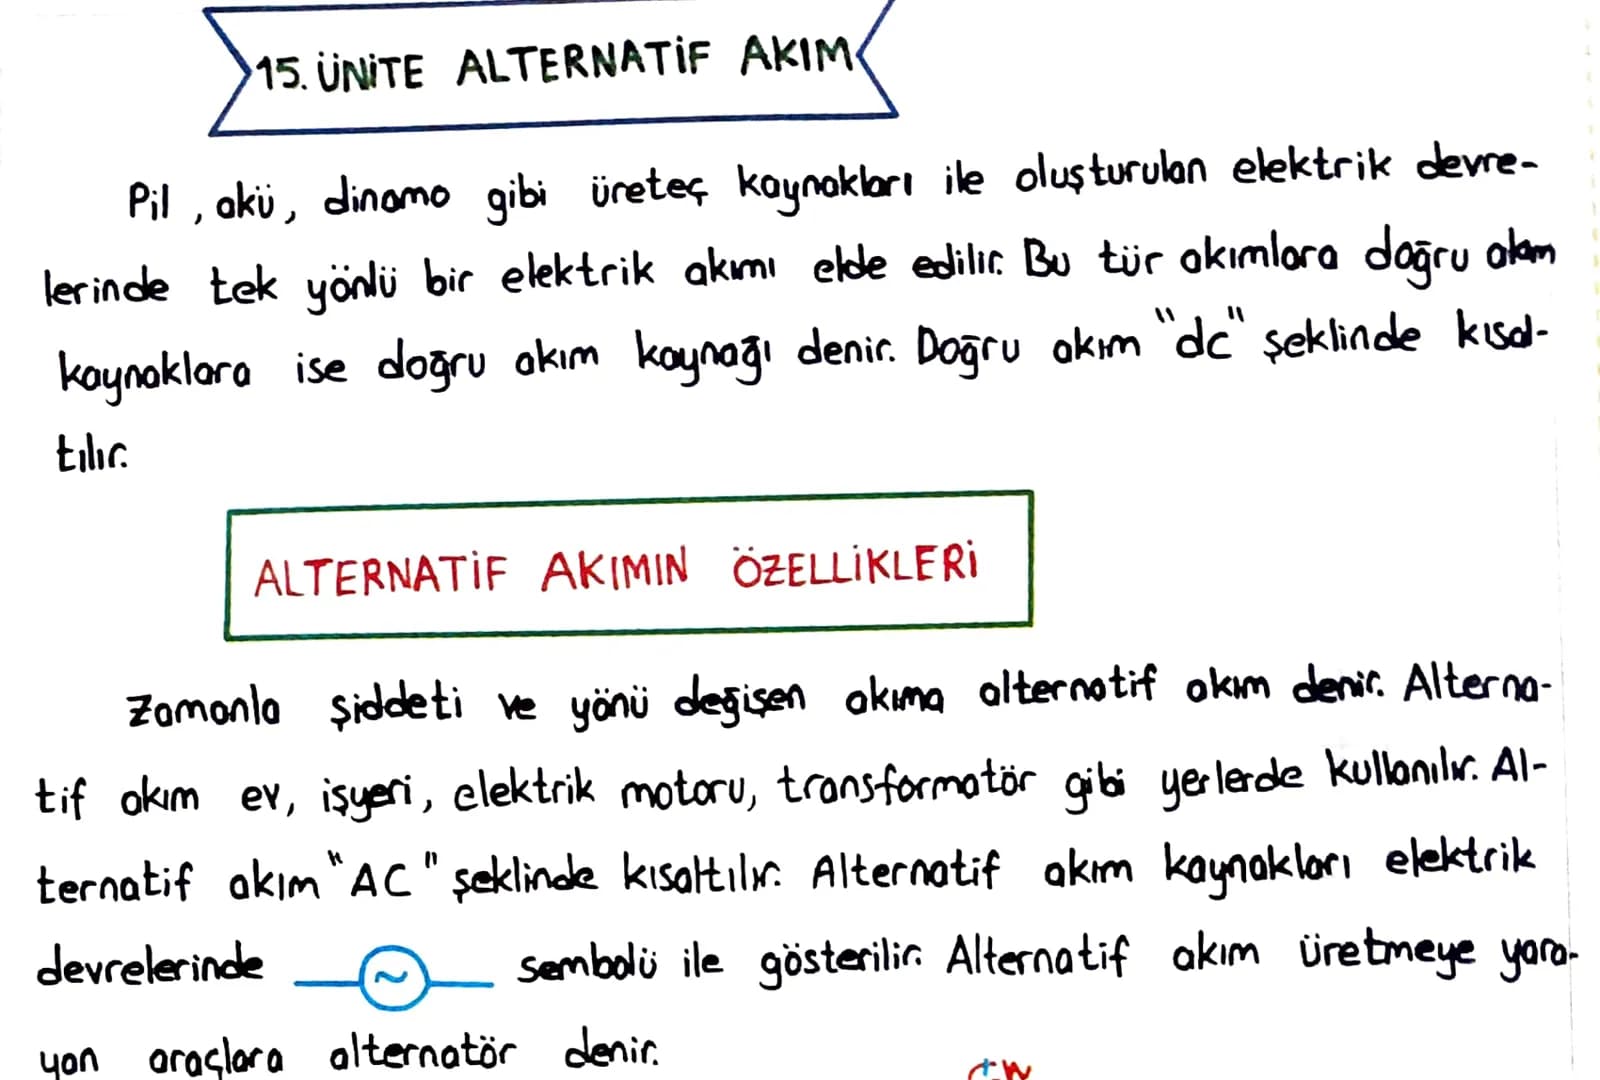 15. ÜNİTE ALTERNATİF AKIM
Pil, akü, dinamo gibi üreteç kaynakları ile oluşturulan elektrik devre-
lerinde tek yönlü bir elektrik akımı elde edilir. Bu tür akımlara doğru akım
kaynaklara ise doğru akım kaynağı denir. Doğru akım "dc" şeklinde kısal-
tılır.
ALTERNATİF AKIMIN ÖZELLİKLERİ
Zamanla şiddeti ve yönü değişen akıma alternatif akım denir. Alterna-
tif akım ev, işyeri, elektrik motoru, transformatör gibi yerlerde kullanılır. Al-
ternatif akım "AC" şeklinde kısaltılır. Alternatif akım kaynakları elektrik
devrelerinde ~ sembolü ile gösterilir. Alternatif akım üretmeye yara-
yan araçlara alternatör denir.